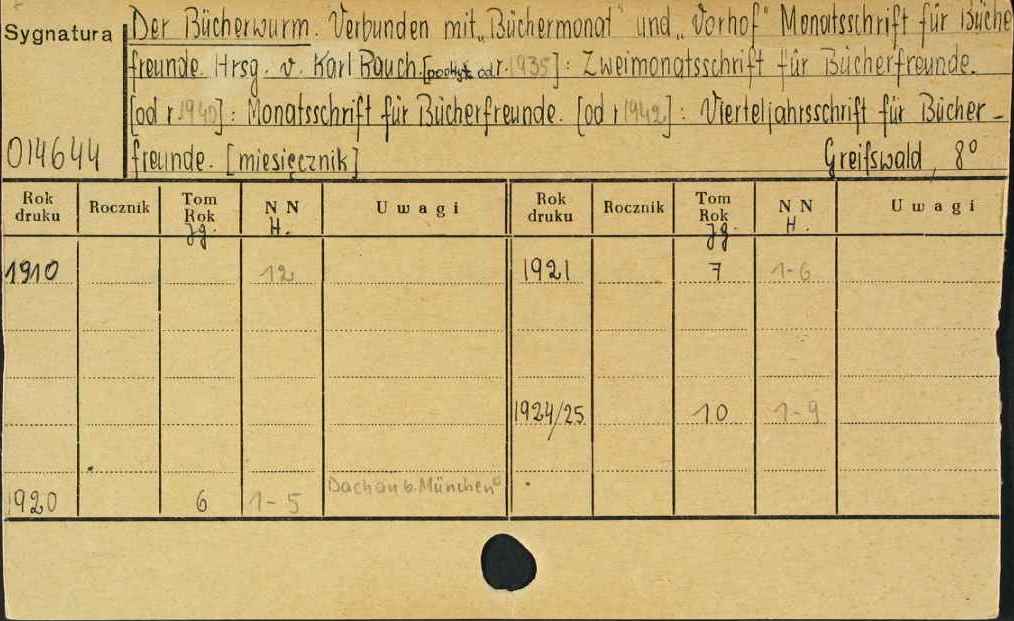 Sygnatura
014644
Der Bücherwurm. Verbunden mit „Büchermonat" und „Vorhof" Monatsschrift für Büche
freunde. Hrsg. v. Karl Rauch. [ od r. 1935]: Zweimonatsschrift für Bücherfreunde.
[od r 1940]: Monatsschrift für Bücherfreunde. [od r 1942]: Vierteljahrsschrift für Bücher-
freunde. [miesięcznik] Greifswald, 8°
Rok druku Rocznik Tom Rok Jg. NN H. Uwagi Rok druku Rocznik Tom Rok Jg. NN H. Uwagi
1910 12 1921 7 1-6
1924/25 10 1-9
1920 6 1-5 Dachau b. München